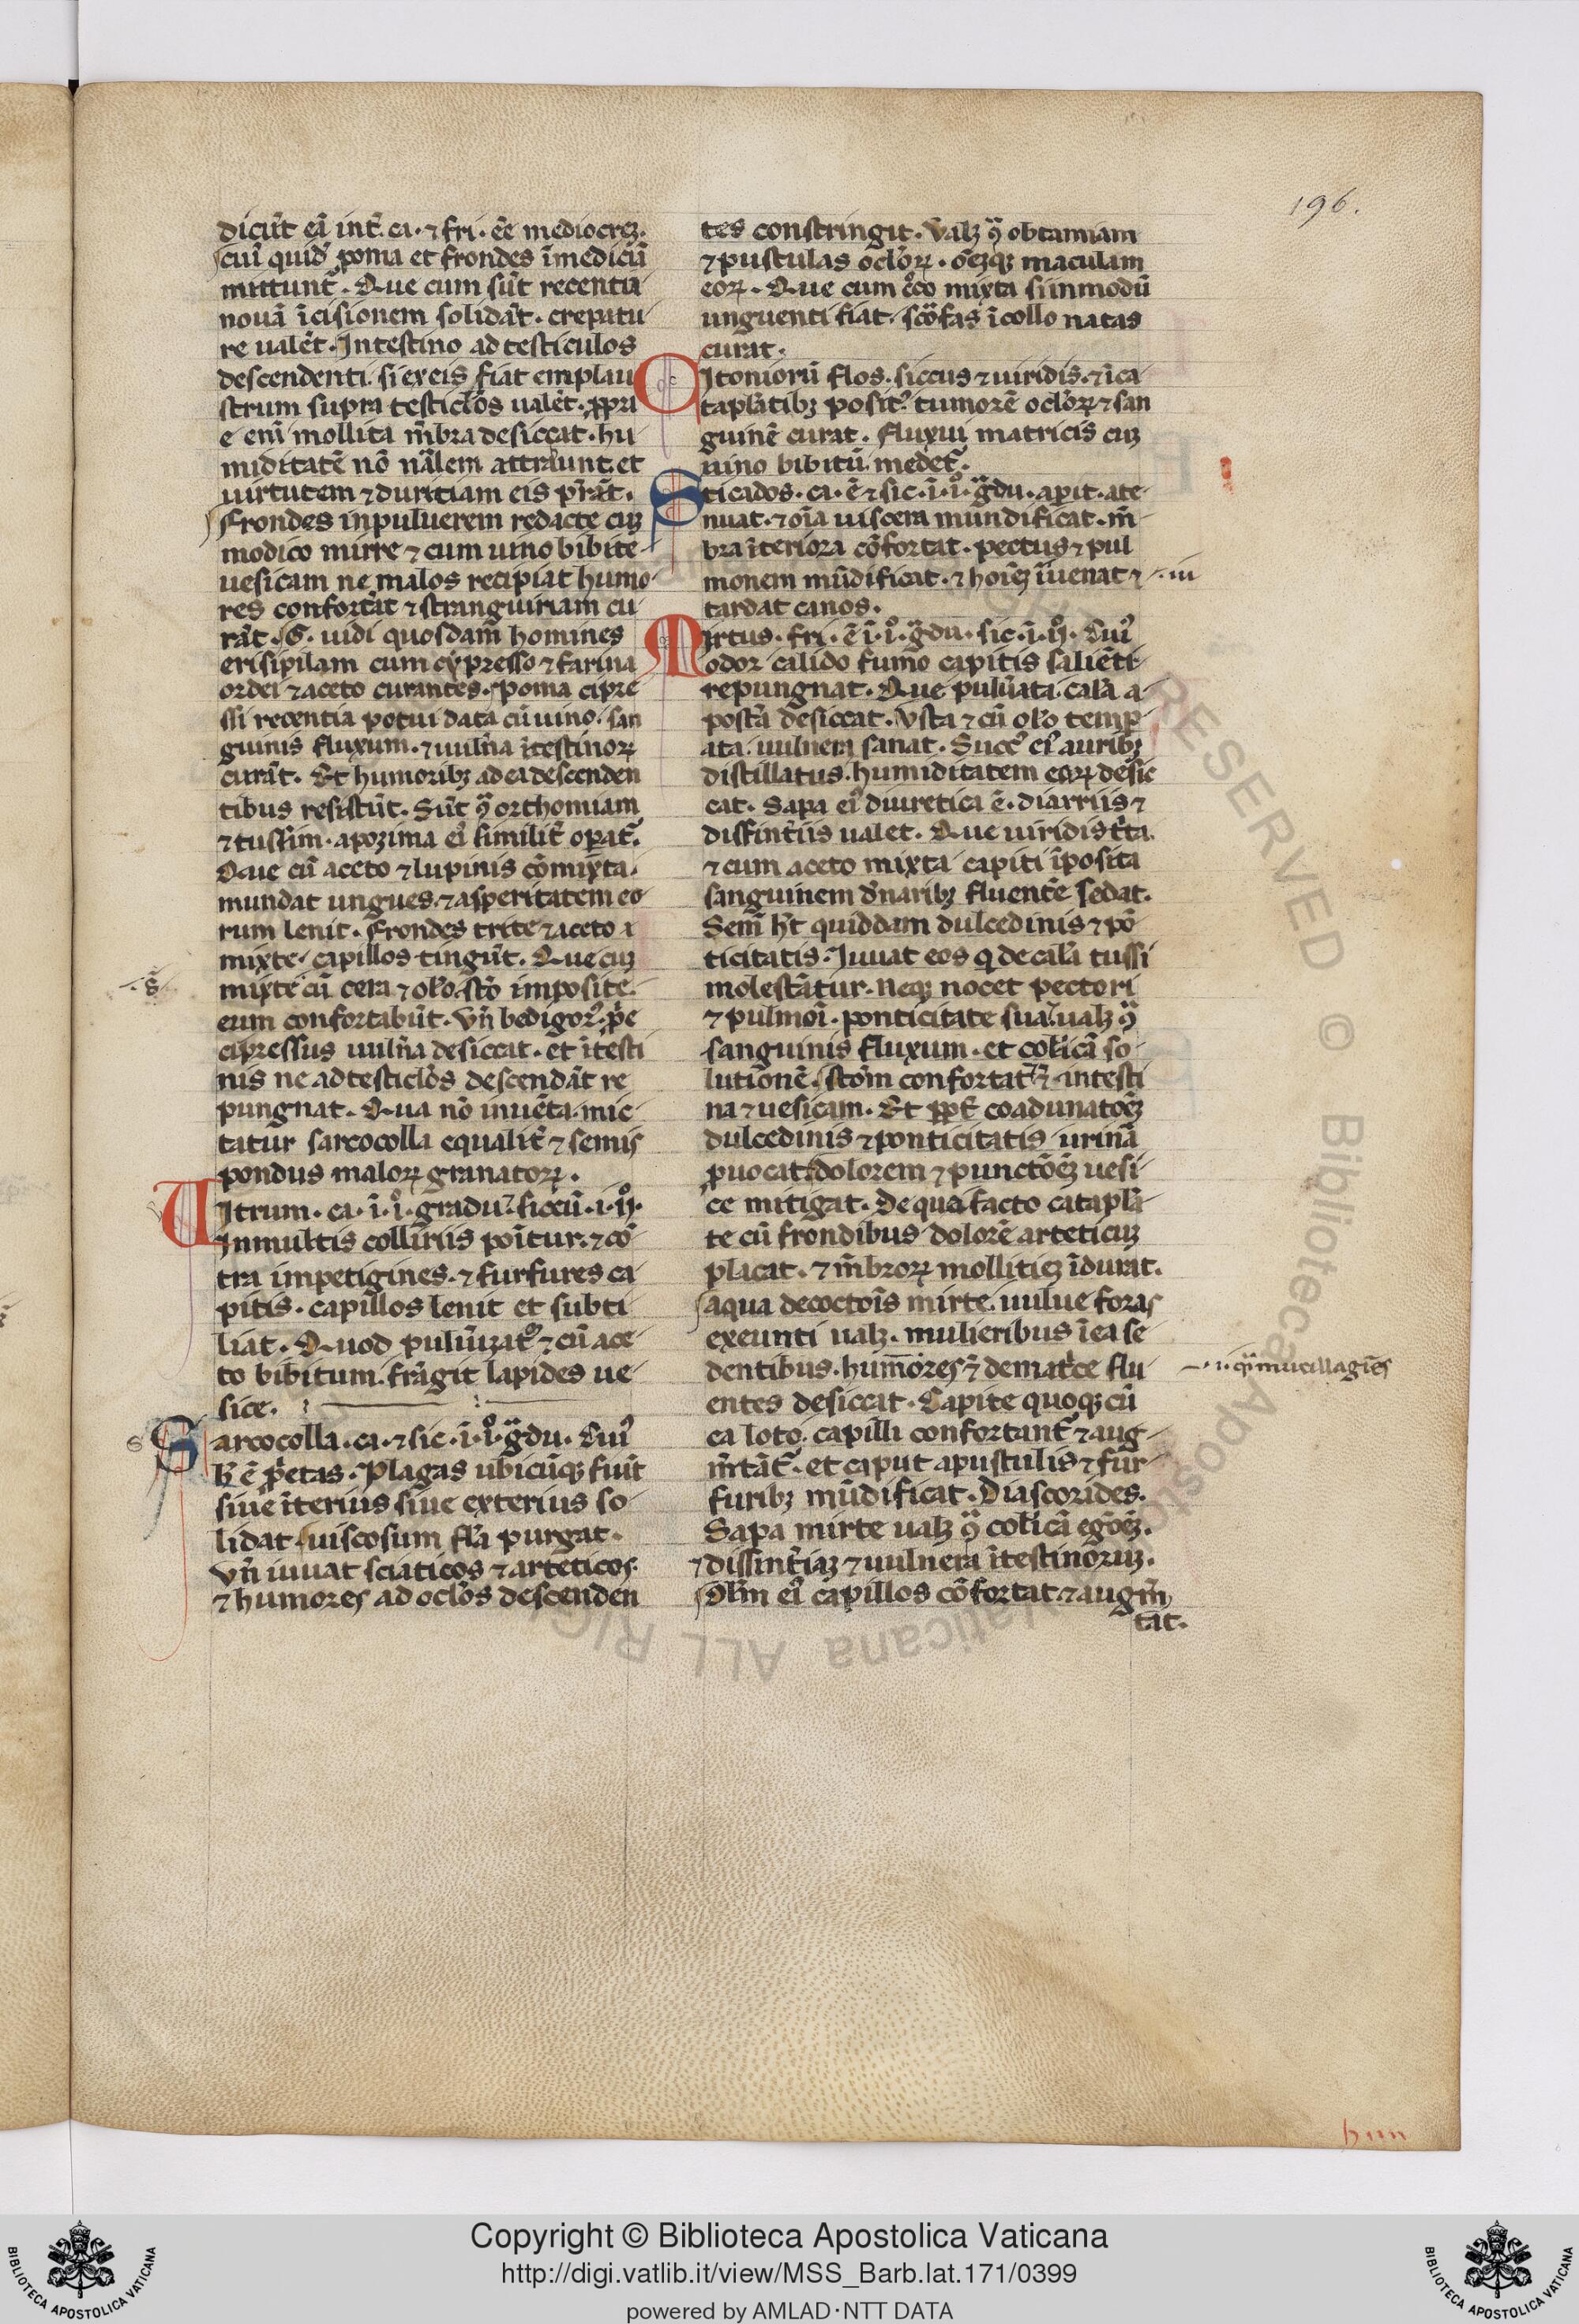 196.
dicūt eā int̄ ca· ⁊ fri· ēe mediocreꝫ·
cui᷒ quid̄ poma et frondes ī medicīā
mittunt᷑· Que cum sūt recentia
nouā īcisionem solidāt· crepatu
re ualēt· Intestino ad testiculos
descendenti· si ex eis fiat emplau
strum supra testicl̄os ualēt· ꝓpri
e enī mollita m̄bra desiccat· hu
miditatē nō nālem attrahunt et
uirtutem ⁊ duritiam eis pr̄āt·
Frondes in puluerem redacte cuꝫ
modico mirre ⁊ cum uino bibite
uesicam ne malos recipiat humo
res confortāt ⁊ stranguiriam cu
rāt· G· uidi quosdam homines
erisipilam cum cypresso ⁊ farina
ordei ⁊ aceto curantes· poma cipre
ssi recentia potui data cū uino· san
guinis fluxum· ⁊ uulña ītestinoꝝ
curāt· Et humoribꝫ ad ea descenden
tibus resistūt· Sūt ꝯ̄ orthomiam
⁊ tussim· apozima ei᷒ similit̄ oꝑat᷑·
Que cū aceto ⁊ lupinis cōmixta·
mundat ungues· ⁊ asperitatem eo
rum lenit· Frondes trite ⁊ aceto
mixte· capillos tingūt· Que cuꝫ
mixte cū cera ⁊ ol̄o sto᷒ imposite·
eum confortabūt· Vn̄ bedigor᷒·
cipressus uulña desiccat· et ītesti
nis ne ad testicl̄os descendāt re
pungnat· Qua nō inuēta· mic
tatur sarcocolla equalit̄ ⁊ semis
pondus maloꝝ granatoꝝ·
Uitrum· ca· ī· i᷒· gradu· siccū· ī· ij᷒·
In multis collirīis ponitur· ⁊ cō
tra impetigines· ⁊ furfures ca
pitis· capillos lenit et subti
liat· Quod puluīzat᷒ ⁊ cū ace
to bibitum· frāgit lapides ue
sice·
Sarcocolla· ca· ⁊ sic· ī· i᷒· gͣdu· Cui᷒
Plagas ubicūqꝫ fuīt
siue īterius siue exterius so
lidat· uiscosum fl̄a purgat·
Vn̄ iuuat sciaticos ⁊ arteticos·
⁊ humores ad ocl̄os descenden
tes constringit· Valꝫ ꝯ̄ obtamiam
⁊ pustulas ocl̄oꝝ· maculam
eoꝝ· Que cum mixta si in modū
unguenti fiat· scͦfas ī collo natas
curat·
Citonioꝝ flos· siccus ⁊ uiridis· ⁊ ī ca
taplātibꝫ posit᷒ tumorē ocl̄oꝝ ⁊ san
guinē curat· Fluxui matricis cuꝫ
uino bibitū medet᷑·
Sticados· ca· ē ⁊ sic· ī· i᷒· gͣdu· aꝑit· ate
nuat· ⁊ oīa uiscera mundificat· m̄
bra īteriora cōfortat· pectus ⁊ pul
monem mūdificat· ⁊ hoīeꝫ īuuenat ⁊
tardat canos·
Mirtus· fri· ē ī· i᷒· gͣdu· sic· ī· ij᷒· Cui᷒
odor calido fumo capitis saliēti
repungnat· Que puluāta· cal̄a a
post̄a desiccat· Vsta ⁊ cū ol̄o temꝑ
ata· uulnera sanat· Succ᷒ ei᷒ auribꝫ
distillatus· humiditatem eoꝝ desic
cat· Sapa ei᷒ diuretica ē· diarriis ⁊
dissint̄iis ualet· Que uiridis t̄ta
⁊ cum aceto mixta capiti īposita
sanguinem d̄ naribꝫ fluentē sedat·
Sem̄ hꝫ quiddam dulcedinis ⁊ pō
ticitatis· Iuuat eos q de cal̄a tussi
molestātur· neqꝫ nocet pectori
⁊ pulmoī· ponticitate sua· ualꝫ ꝯ̄
sanguinis fluxum· et col̄icā so
lutionē· Stom̄ confortat· ⁊ intesti
na ⁊ uesicam· Et coadunatōeꝫ
dulcedinis ⁊ ponticitatis urinā
ꝓuocat· dolorem ⁊ punctōeꝫ uesi
ce mitigat· De qua facto cataplā
te cū frondibus dolorē arteticuꝫ
placat· ⁊ m̄broꝝ mollitieꝫ īdurat·
aqua decoctōis mirte· uulue foras
exeunti ualꝫ· mulieribus ī ea se
dentibus· humores de matͥce flu
entes desiccat· Capite quoqꝫ cū
ea loto· capilli confortant᷑ ⁊ aug
m̄tāt᷑· et caput a pustulis ⁊ fur
furibꝫ mūdificat· Diascorides·
Sapa mirte ualꝫ ꝯ̄ col̄icā egōeꝫ·
⁊ dissint̄iaꝫ ⁊ uulnera ītestinoruꝫ·
Ol̄m ei᷒ capillos cōfortat ⁊ augm̄
tat·
iu
mucillagīes
Copyright © Biblioteca Apostolica Vaticana
http://digi.vatlib.it/view/MSS_Barb.lat.171/0399
powered by AMLAD·NTT DATA
BIBLIOTECA APOSTOLICA VATICANA
BIBLIOTECA APOSTOLICA VATICANA